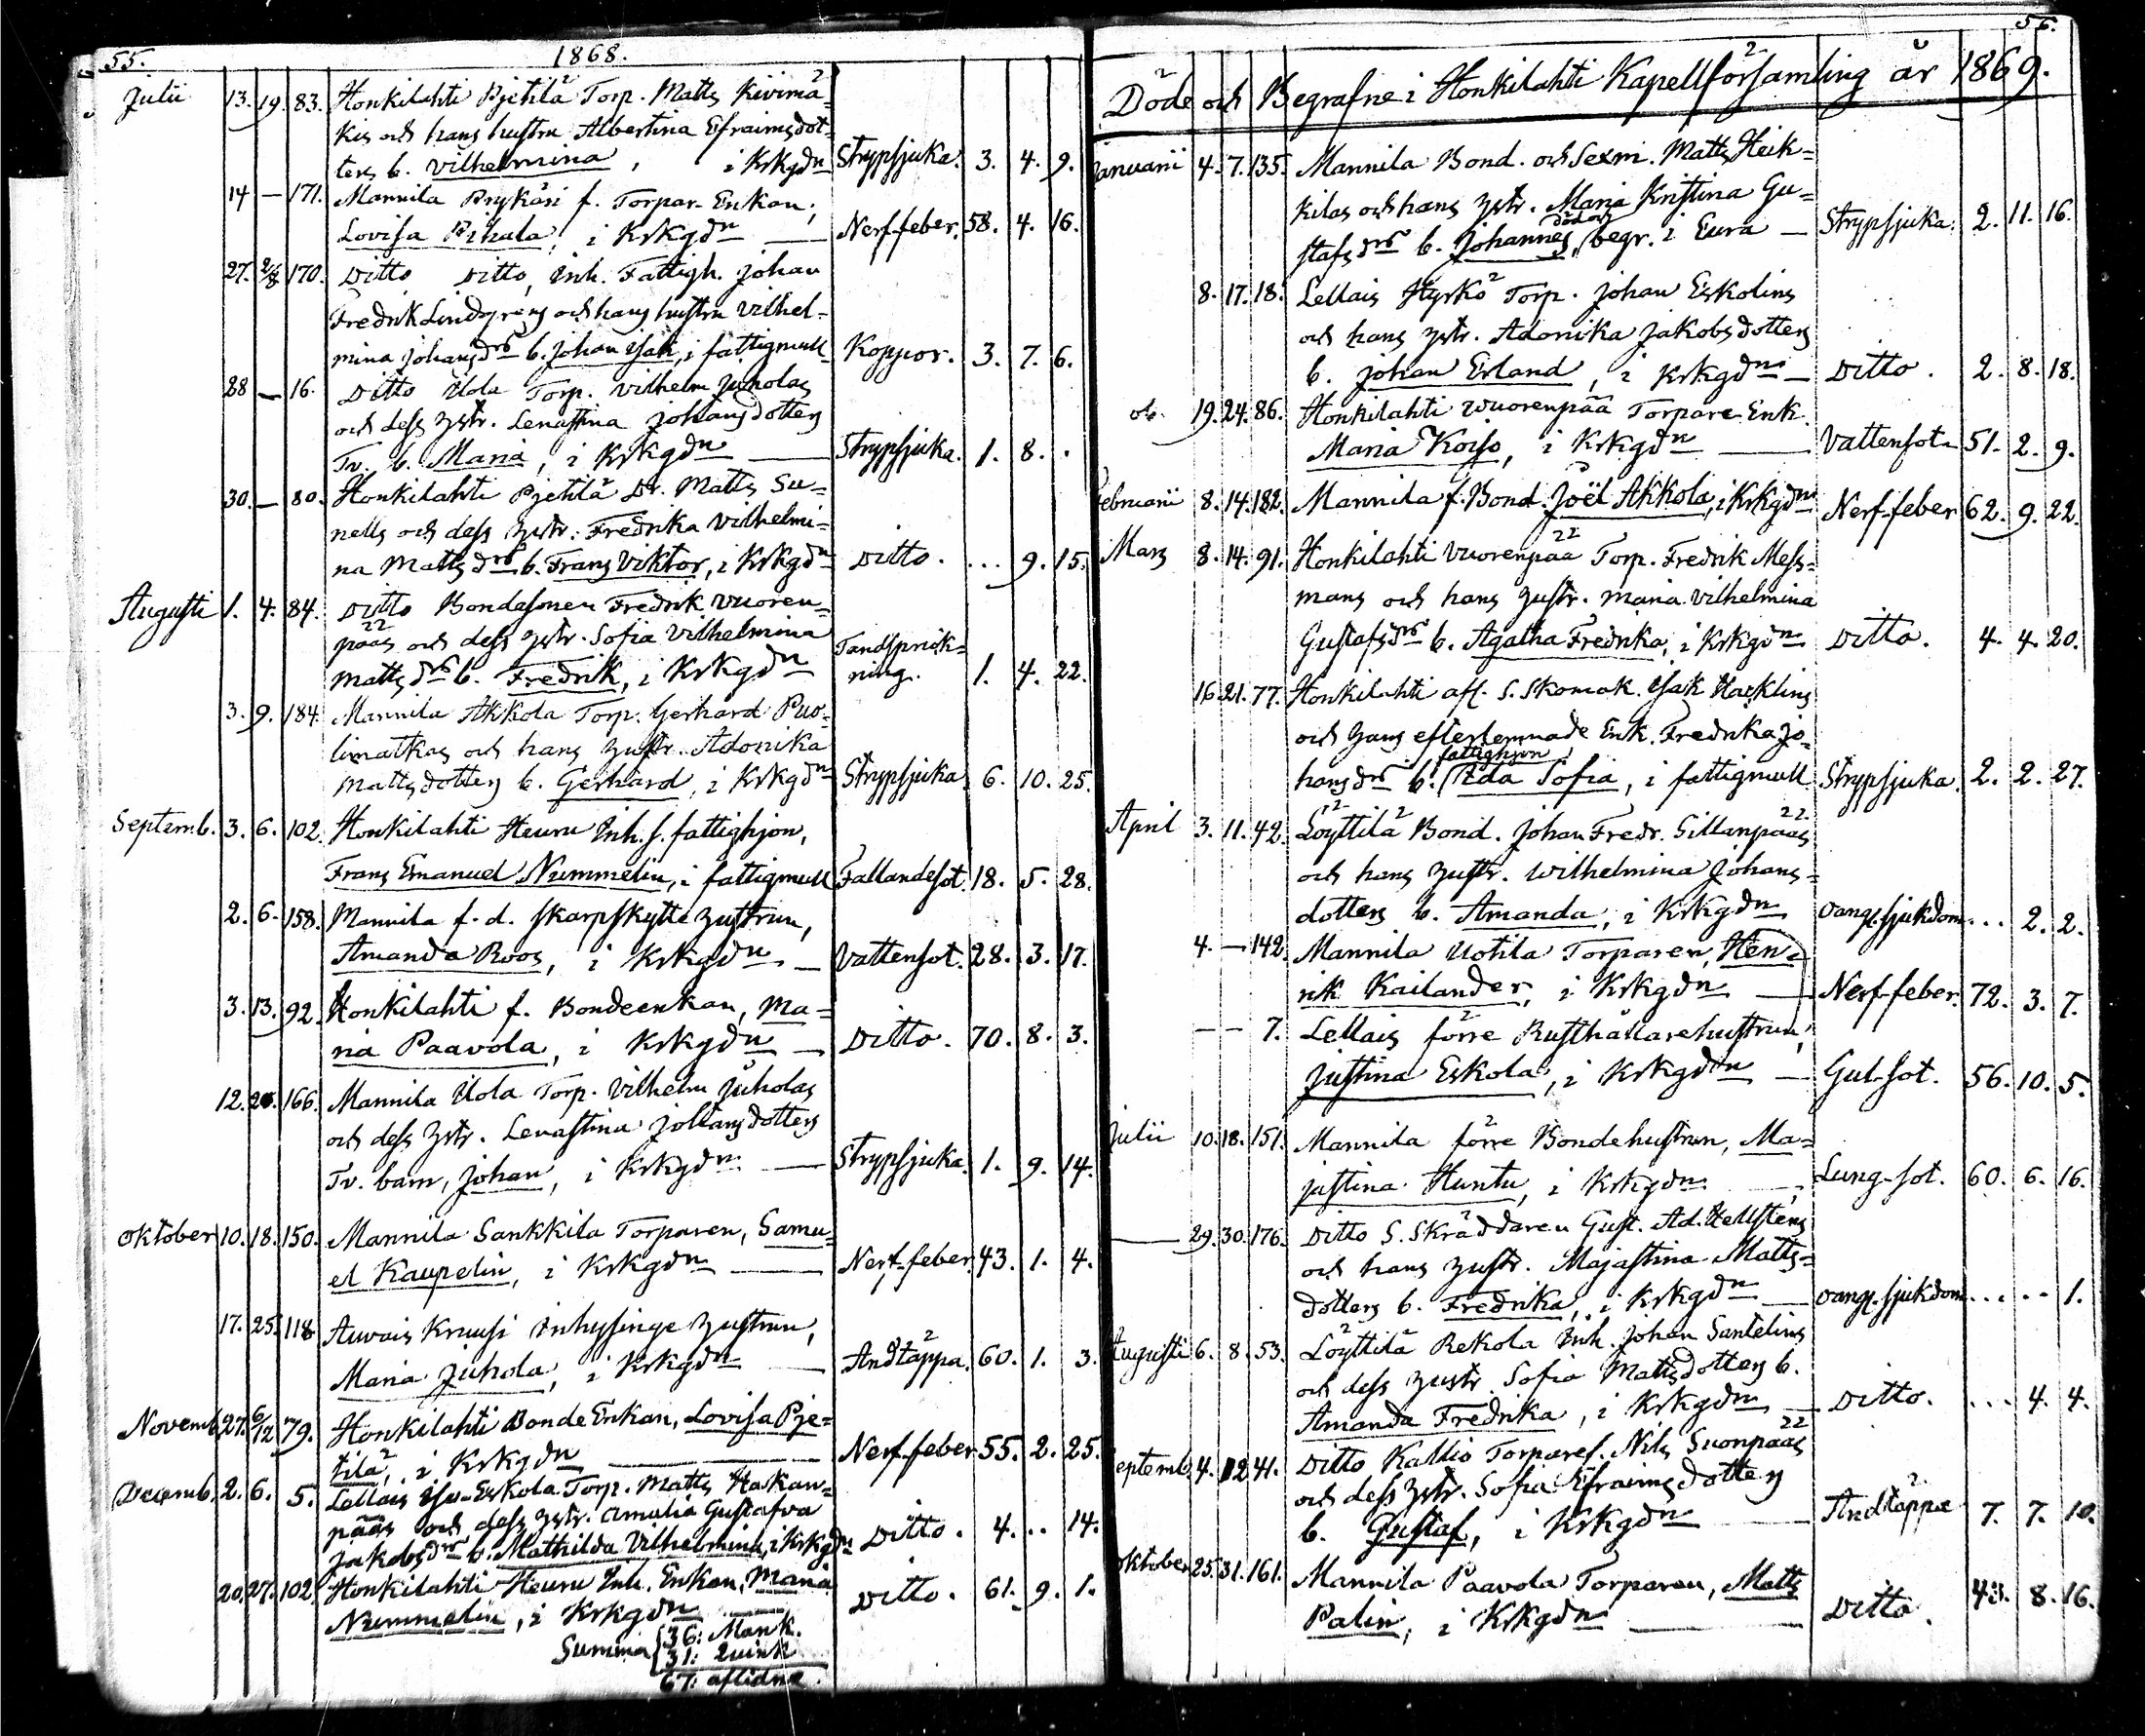 55.
1868.
Julii 13. 19. 83. Honkilahti Pjetilä Torp. Matts Kivimä=
kis och hans hustru Albertina Efraimsdot=
ters b. Vilhelmina, i Krkgdn Strypsjuka. 3. 4. 9.
14 — 171. Mannila Prykäri f. Torpar-Enkan,
Lovisa Pihala, i Krkgdn — Nerf-feber. 58. 4. 16.
27. 2/8 170. Ditto Ditto, Inh. Fattigh. Johan
Fredrik Lindgrens och hans hustru Vilhel=
mina Johansdrs b. Johan Isak, i fattigmull Koppor. 3. 7. 6.
28 — 16. Ditto Uola Torp. Vilhelm Juholas
och dess hstr. Lenastina Johansdotters
Tv. b. Maria, i Krkgdn — Strypsjuka. 1. 8. .
30. — 80. Honkilahti Pjetilä Dr. Matts Su=
nells och dess hustr. Fredrika Vilhelmi=
na Mattsdrs b. Frans Viktor, i Krkgdn Ditto. ... 9. 15.
Augusti 1. 4. 84. Ditto Bondesonen Fredrik Vuoren=
pääs och dess hstr. Sofia Vilhelmina
Mattsdrs b. Fredrik, i Krkgdn Tandsprick=
ning. 1. 4. 22.
3. 9. 184. Mannila Akkola Torp. Gerhard Puo=
limatkas och hans hustr. Adonika
Mattsdotters b. Gerhard, i Krkgdn Strypsjuka. 6. 10. 25.
Septemb. 3. 6. 102. Honkilahti Heuru Inh. s. fattighjon,
Frans Emanuel Nummelin, i fattigmull Fallandesot. 18. 5. 28.
2. 6. 158. Mannila f. d. Skarpskytte hustrun,
Amanda Roos, i Krkgdn — Vattensot. 28. 3. 17.
3. 13. 92. Honkilahti f. Bondeenkan, Ma=
ria Paavola, i Krkgdn — Ditto. 70. 8. 3.
12. 20. 166. Mannila Uola Torp. Vilhelm Juholas
och dess hstr. Lenastina Johansdotters
Tv. barn, Johan, i Krkgdn — Strypsjuka. 1. 9. 14.
Oktober 10. 18. 150. Mannila Sankkila Torparen, Samu=
el Kaupelin, i Krkgdn — Nerf-feber 43. 1. 4.
17. 25. 118 Auvais Kruusi Inhysinge hustrun,
Maria Juhola, i Krkgdn — Andtäppa. 60. 1. 3.
Novemb. 27. 6/12 79. Honkilahti Bonde Enkan, Lovisa Pje=
tilä, i Krkgdn — Nerf-feber 55. 2. 25.
Decemb. 2. 6. 5. Lellais Iso-Eskola Torp. Matts Hakan=
pääs och dess hstr. Amalia Gustafva
Jakobsdrs b. Mathilda Vilhelmina, i Krkgdn Ditto. 4. .. 14.
20. 27. 102. Honkilahti Heuru Inh. Enkan, Maria
Nummelin, i Krkgdn Ditto. 61. 9. 1.
Summa { 36: Mank.
31: Quink
67: aflidne.
56.
Döde och Begrafne i Honkilahti Kapellförsamling år 1869.
Januarii 4. 7. 135. Mannila Bond. och Sexm. Matts Heik=
kilas och hans hstr. Maria Kristina Gu=
stafsdrs b. Johannes, död och begr. i Eura — Strypsjuka. 2. 11. 16.
8. 17. 18. Lellais Hyrkö Torp. Johan Eskolins
och hans hstr. Adonika Jakobsdotters
b. Johan Erland, i Krkgdn — Ditto. 2. 8. 18.
19. 24. 86. Honkilahti Wuorenpää Torpare Enk.
Maria Koiso, i Krkgdn — Vattensot 51. 2. 9.
Februarii 8. 14. 182. Mannila f. Bond. Joël Akkola, i Krkgdn Nerf-feber 62. 9. 22.
Mars 8. 14. 91. Honkilahti Vuorenpää Torp. Fredrik Mess=
mans och hans hustr. Maria Vilhelmina
Gustafsdrs b. Agatha Fredrika, i Krkgdn Ditto. 4. 4. 20.
16. 21. 77. Honkilahti afl. S. Skomak. Isak Hacklins
och hans efterlemnade Enk. Fredrika Jo=
hansdrs b. fattighjon Ida Sofia, i fattigmull Strypsjuka. 2. 2. 27.
April 3. 11. 42. Löyttilä Bond. Johan Fredr. Sillanpääs
och hans hustr. Wilhelmina Johans=
dotters b. Amanda, i Krkgdn Oang. sjukdom ... 2. 2.
4. — 142. Mannila Uotila Torparen, Hen=
rik Kailander, i Krkgdn — Nerf-feber. 72. 3. 7.
— — 7. Lellais förre Rusthållarehustrun,
Justina Eskola, i Krkgdn — Gul-sot. 56. 10. 5.
Julii 10. 18. 151. Mannila förre Bondehustrun, Ma=
jastina Huntu, i Krkgdn Lung-sot. 60. 6. 16.
— 29. 30. 176. Ditto S. Skräddaren Gust. Ad. Hellstens
och hans hustr. Majastina Matts=
dotters b. Fredrika, i Krkgdn — Oang. sjukdom ... .. 1.
Augusti 6. 8. 53. Löyttilä Rekola Inh. Johan Santelins
och dess hustr. Sofia Mattsdotters b.
Amanda Fredrika, i Krkgdn — Ditto. ... 4. 4.
Septemb. 4. 12 41. Ditto Kallio Torparef. Nils Suonpääs
och dess hstr. Sofia Efraimsdotters
b. Gustaf, i Krkgdn — Andtäppa 7. 7. 10.
Oktober 25. 31. 161. Mannila Paavola Torparen, Matts
Palin, i Krkgdn — Ditto. 43. 8. 16.